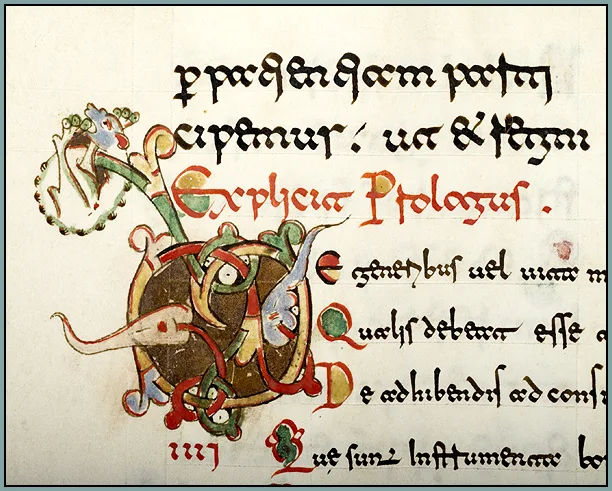 ꝑ patientiam parti
cipemus; ut & regni
Explicit Prologus.
DE generibus uel uita m
Qualis debeat esse a
De adhibendis ad consi
IIII Quę sunt Instrumenta bo